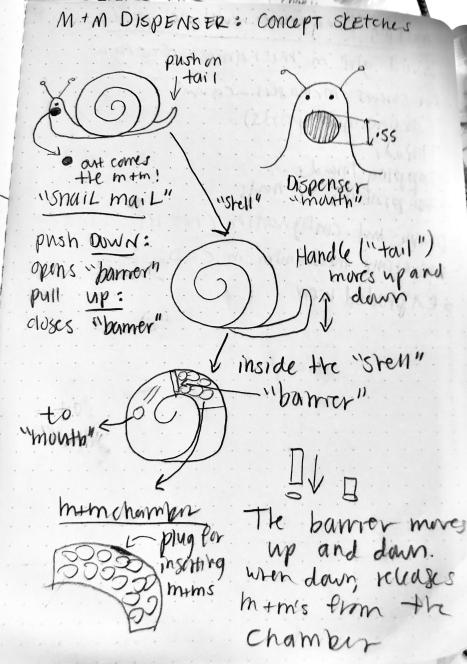 M+M DISPENSER: CONCEPT SKETCHES
push on
tail
out comes
the m+m!
"snail mail"
.55
Dispenser
"mouth"
"shell"
push DOWN:
opens "barrier"
pull up:
closes "barrier"
Handle ("tail")
moves up and
down
inside the "shell"
"barrier"
to
"mouth"
m+m chamber
plug for
inserting
m+ms
The barrier moves
up and down.
when down, releases
m+m's from the
chamber